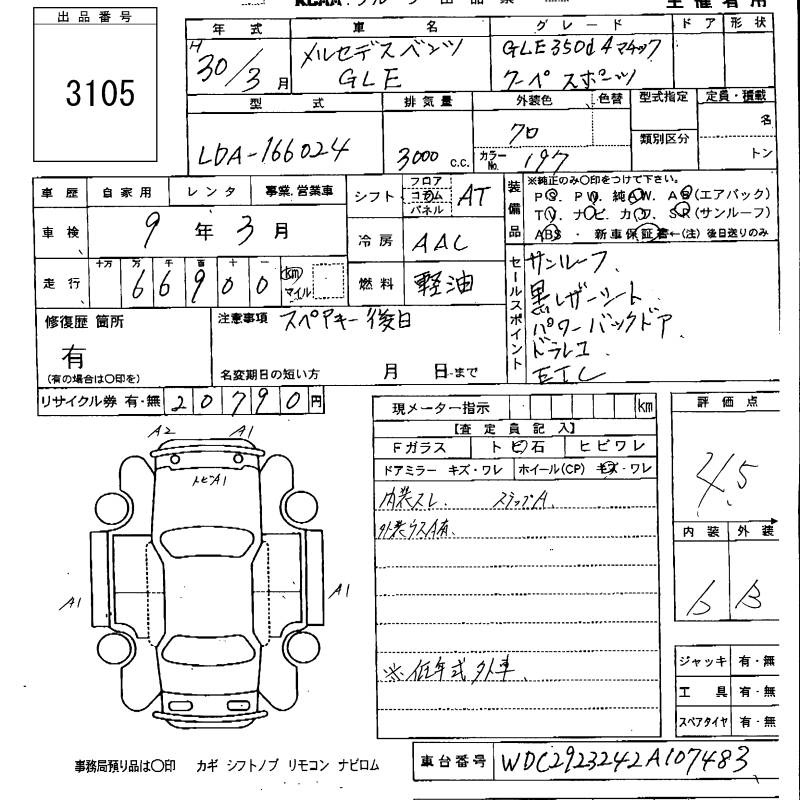 出品番号
3105
年式 車名 グレード ドア 形状
H
30/3月
メルセデスベンツ
GLE
GLE350d 4マチック
クーペ スポーツ
型式 排気量 外装色 色替 型式指定 定員・積載
LDA-166024
3000 c.c.
クロ
カラーNo. 197
類別区分
名
トン
車歴 自家用 レンタ 事業.営業車
車検 9年3月
走行 十万 万 千 百 十 一
66900 km マイル
シフト フロア コラム パネル AT
冷房 AAC
燃料 軽油
装備品
※純正のみ〇印をつけて下さい。
PS. PW. 純AW. AB(エアバック)
TV. ナビ. カワ. SR(サンルーフ)
ABS ・ 新車保証書←(注) 後日送りのみ
セールスポイント
サンルーフ.
黒レザーシート
パワーバックドア.
ドラレコ
ETC
修復歴 箇所
有
(有の場合は〇印を)
注意事項 スペアキー後日
名変期日の短い方 月 日まで
リサイクル券 有・無 20790円
現メーター指示 km
【査定員記入】
Fガラス トビ石 ヒビワレ
ドアミラー キズ・ワレ ホイール(CP) キズ・ワレ
内装スレ. ステップA.
外装ウスA有.
※低年式外車.
評価点
4.5
内装 外装
b B
ジャッキ 有・無
工具 有・無
スペアタイヤ 有・無
A2 A1
トビA1
A1 A1
事務局預り品は〇印 カギ シフトノブ リモコン ナビロム
車台番号 WDC2923242A107483